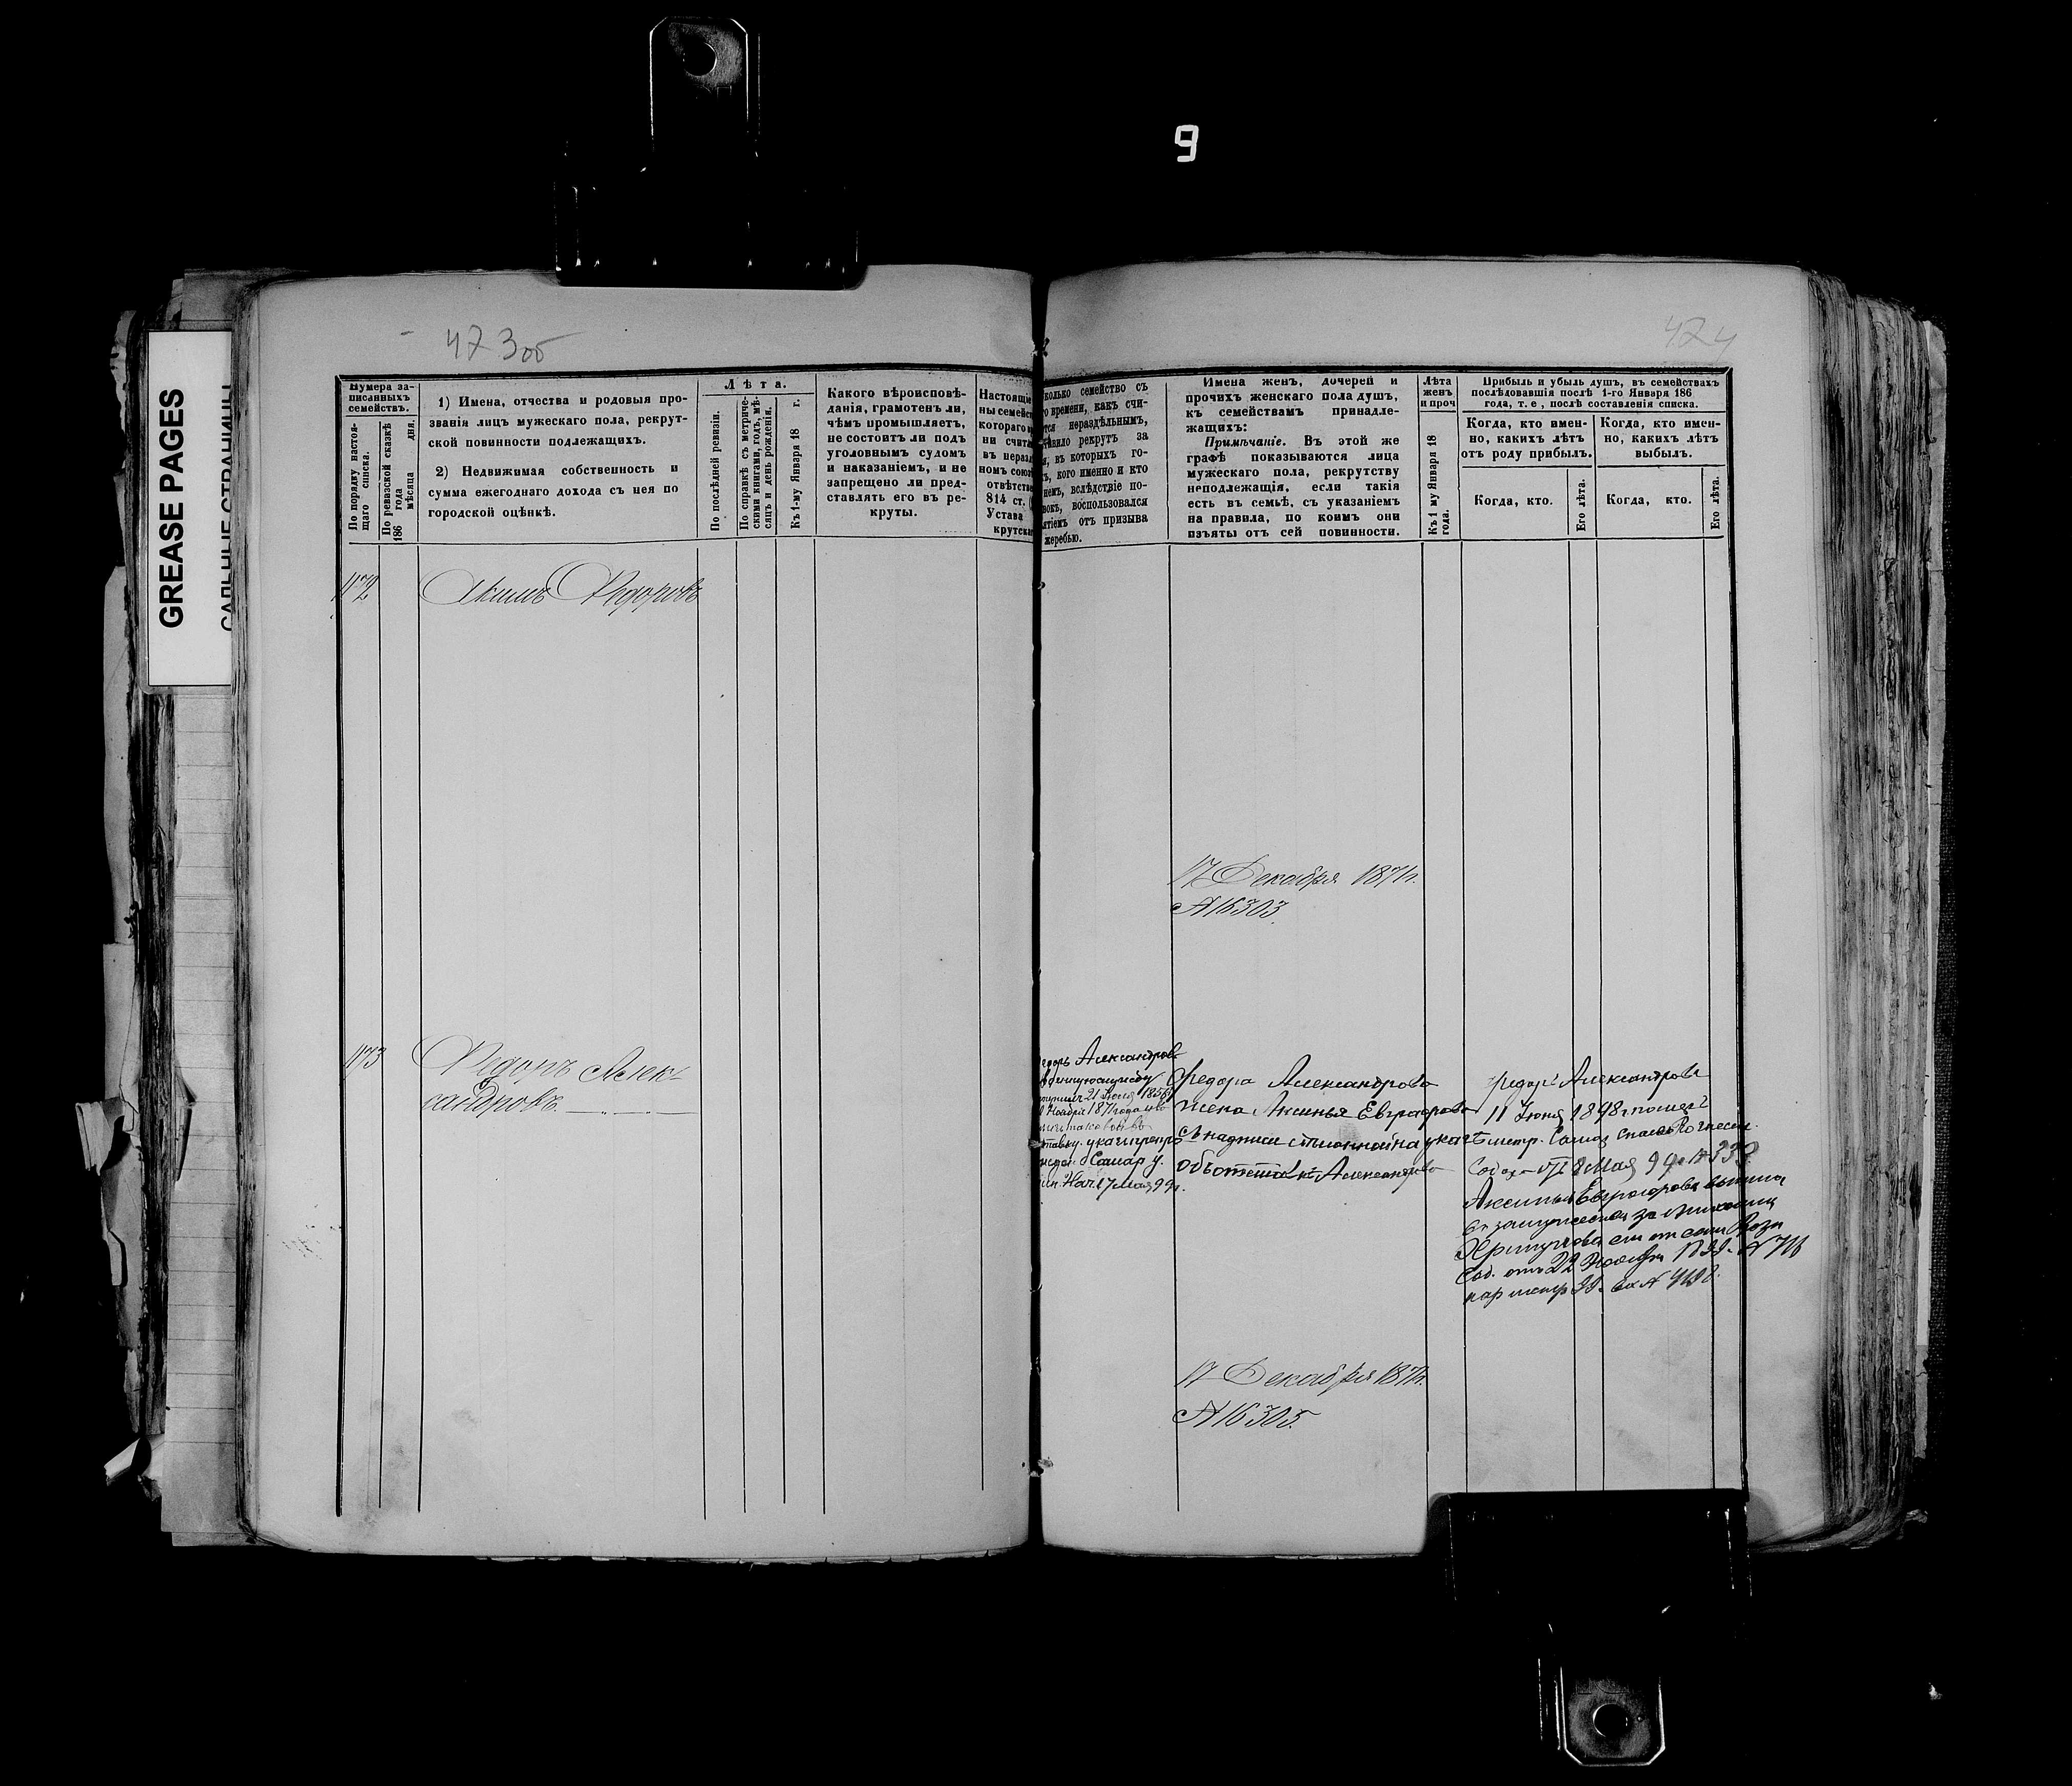 9
GREASE PAGES
САЛЬНЫЕ СТРАНИЦЫ
473 об
424
Нумера за-
писанныхъ
семействъ.
По порядку настоя-
щаго списка.
По ревизской сказкѣ
186 года
мѣсяца дня.
1) Имена, отчества и родовыя про-
званія лицъ мужескаго пола, рекрут-
ской повинности подлежащихъ.
2) Недвижимая собственность и
сумма ежегоднаго дохода съ нея по
городской оцѣнкѣ.
Лѣта.
По послѣдней ревизіи.
По справкѣ съ метриче-
скими книгами, годъ, мѣ-
сяцъ и день рожденія.
Къ 1-му Января 18 г.
Какого вѣроисповѣ-
данія, грамотенъ ли,
чѣмъ промышляетъ,
не состоитъ ли подъ
уголовнымъ судомъ
и наказаніемъ, и не
запрещено ли пред-
ставлять его въ ре-
круты.
Настоящіе
ны семейст
котораго
ни счита
въ нераз
номъ союз
отвѣтстве
814 ст.
Устава
крутскаг
колько семейство съ
го времени, какъ счи-
тся нераздѣльнымъ,
авило рекрутъ за
я, въ которыхъ го-
ъ, кого именно и кто
немъ, вслѣдствіе по-
вокъ, воспользовался
ятіемъ отъ призыва
жеребью.
Имена женъ, дочерей и
прочихъ женскаго пола душъ,
къ семействамъ принадле-
жащихъ:
Примѣчаніе. Въ этой же
графѣ показываются лица
мужескаго пола, рекрутству
неподлежащія, если такія
есть въ семьѣ, съ указаніемъ
на правила, по коимъ они
изъяты отъ сей повинности.
Лѣта
женъ
и проч
Къ 1 му Января 18
года.
Прибыль и убыль душъ, въ семействахъ
послѣдовавшія послѣ 1-го Января 186
года, т. е, послѣ составленія списка.
Когда, кто имен-
но, какихъ лѣтъ
отъ роду прибылъ.
Когда, кто имен-
но, какихъ лѣтъ
выбылъ.
Когда, кто.
Его лѣта.
Когда, кто.
Его лѣта.
1172
Акимъ Федоровъ
17 Декабря 1871г.
№ 16303.
1173
Федоръ Алек-
сандровъ.
Александров
21 Июня 1856
Ноября 1871 года
Самар у.
Нач. 17 Мая 99г.
Федора Александрова
жена Аксинья Евграфова
съ надписи
Александрова
Федоръ Александровъ
11 Июня 1898г
8 Мая 99г. № 338
Аксинья Евграфова вышла
22 Ноября
17 Декабря 1871г.
№ 16305.